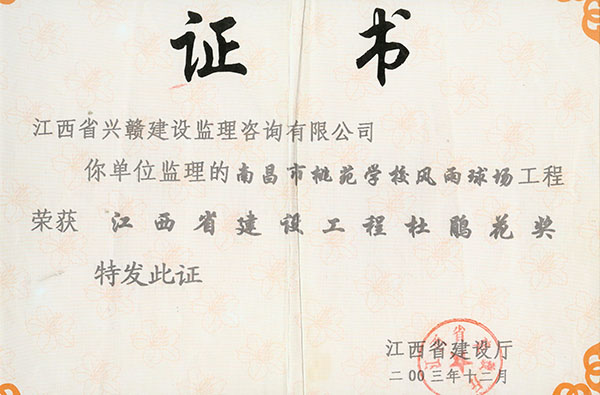 证书
江西省兴赣建设监理咨询有限公司
你单位监理的南昌市桃苑学校风雨球场工程
荣获 江西省建设工程杜鹃花奖
特发此证
江西省建设厅
二00三年十二月